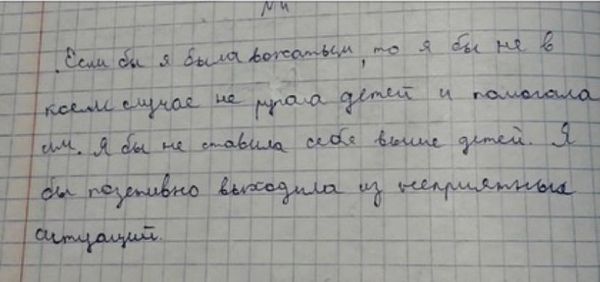 Если бы я была вожатым, то я бы не в
коем случае не ругала детей и помогала
им. Я бы не ставила себя выше детей. Я
бы позетивно выходила из неприятных
ситуаций.